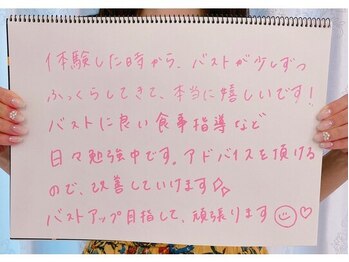 体験した時から、バストが少しずつ
ふっくらしてきて、本当に嬉しいです！
バストに良い食事指導など
日々勉強中です。アドバイスを頂ける
ので、改善していけます
バストアップ目指して、頑張ります